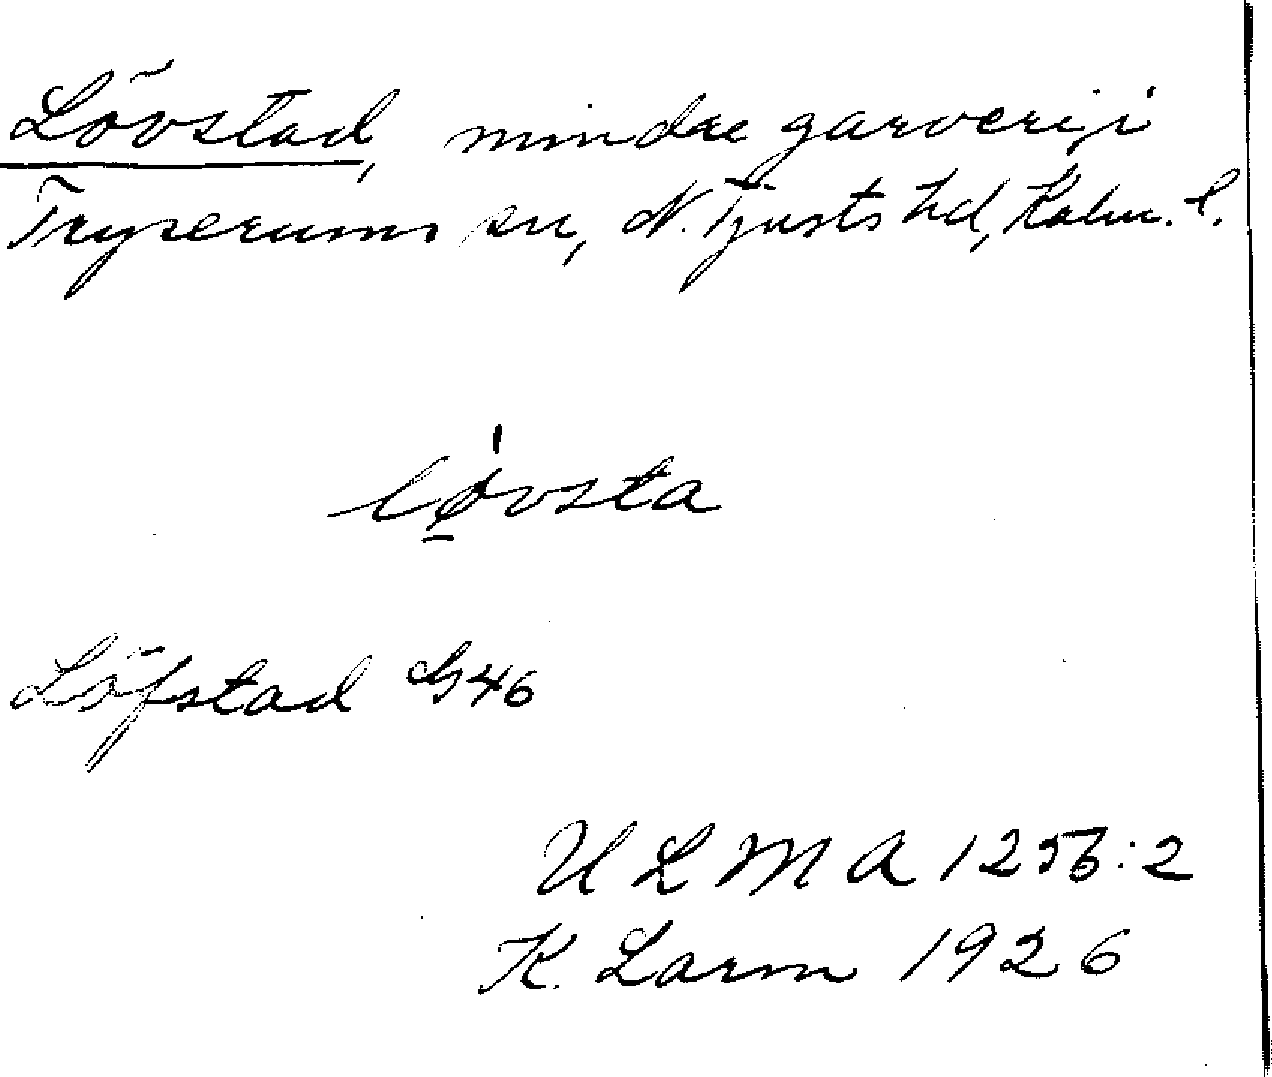 Lövstad, mindre garveri, i
Tryserums sn, N. Tjusts hd, Kalm. l.
lø̱vsta
Löfstad G46
ULMA 1256:2
K. Larm 1926